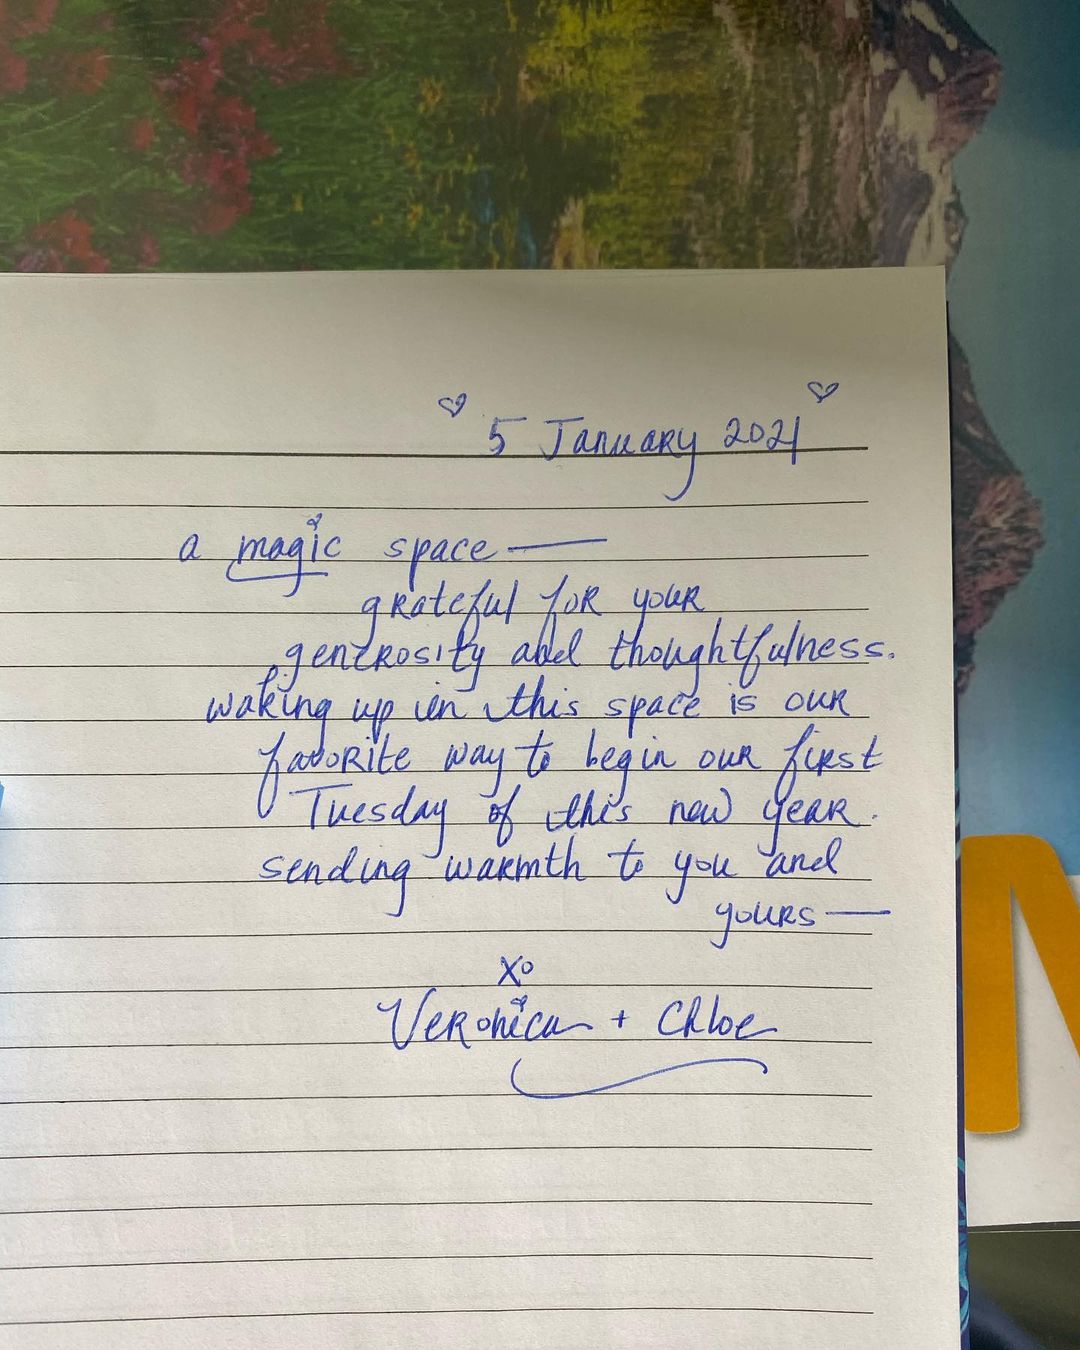 5 January 2021
a magic space —
grateful for your
generosity and thoughtfulness.
waking up in this space is our
favorite way to begin our first
Tuesday of this new year.
sending warmth to you and
yours —
xo
Veronica + Chloe